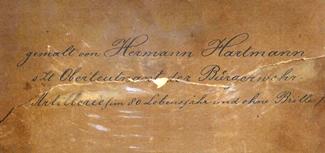 gemalt von Hermann Hartmann
s. Zt. Oberleutnant der Bürgerwehr
Artillerie (im 80 Lebensjahr und ohne Brille)